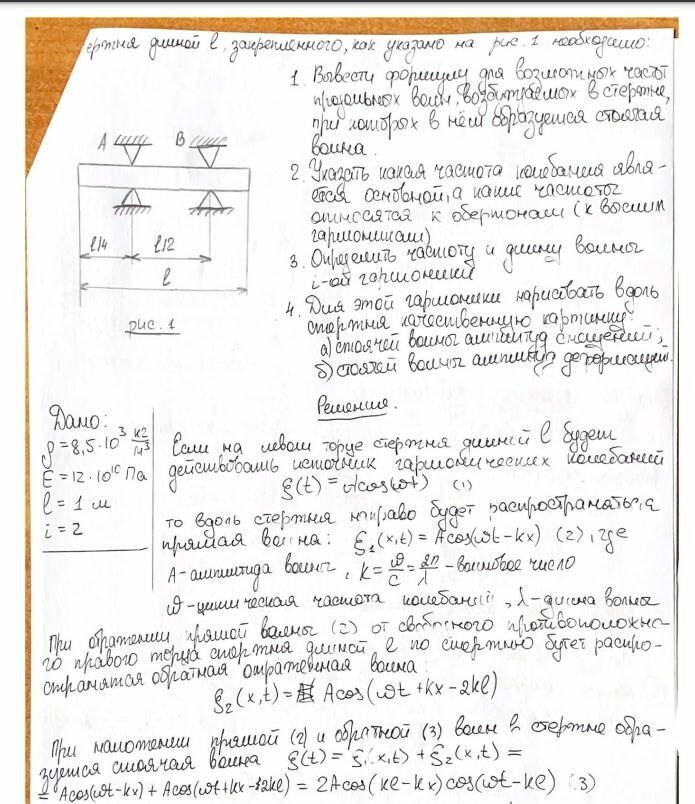 ержня длиной l, закрепленного, как указано на рис. 1 необходимо:
1. Вывести формулу для возможных частот
продольных волн, возбуждаемых в стержне,
при которых в нём образуется стоячая
волна.
2. Указать какая частота колебания явля-
ется основной, а какие частоты
относятся к обертонам (к высшим
гармоникам)
3. Определить частоту и длину волны
i-ой гармоники
4. Для этой гармоники нарисовать вдоль
стержня качественную картинку
а) стоячей волны амплитуд смещений;
б) стоячей волны амплитуд деформации.
A B
l/4 l/2
l
рис. 1
Решения.
Дано:
ρ = 8,5·10³ кг/м³
E = 12·10¹⁰ Па
l = 1 м
i = 2
Если на левом торце стержня длиной l будет
действовать источник гармонических колебаний
ξ(t) = Acos(ωt) (1)
то вдоль стержня направо будет распространяться
прямая волна: ξ₁(x,t) = Acos(ωt-kx) (2), где
A-амплитуда волны, k = ω/c = 2π/λ - волновое число
ω-циклическая частота колебаний, λ-длина волны
При отражении прямой волны (2) от свободного противоположно-
го правого торца стержня длиной l по стержню будет распро-
страняться обратная отраженная волна:
ξ₂(x,t) = Acos(ωt + kx - 2kl)
При наложении прямой (2) и обратной (3) волн в стержне обра-
зуется стоячая волна ξ(t) = ξ₁(x,t) + ξ₂(x,t) =
= Acos(ωt-kx) + Acos(ωt+kx-2kl) = 2Acos(kl-kx)cos(ωt-kl) (3)